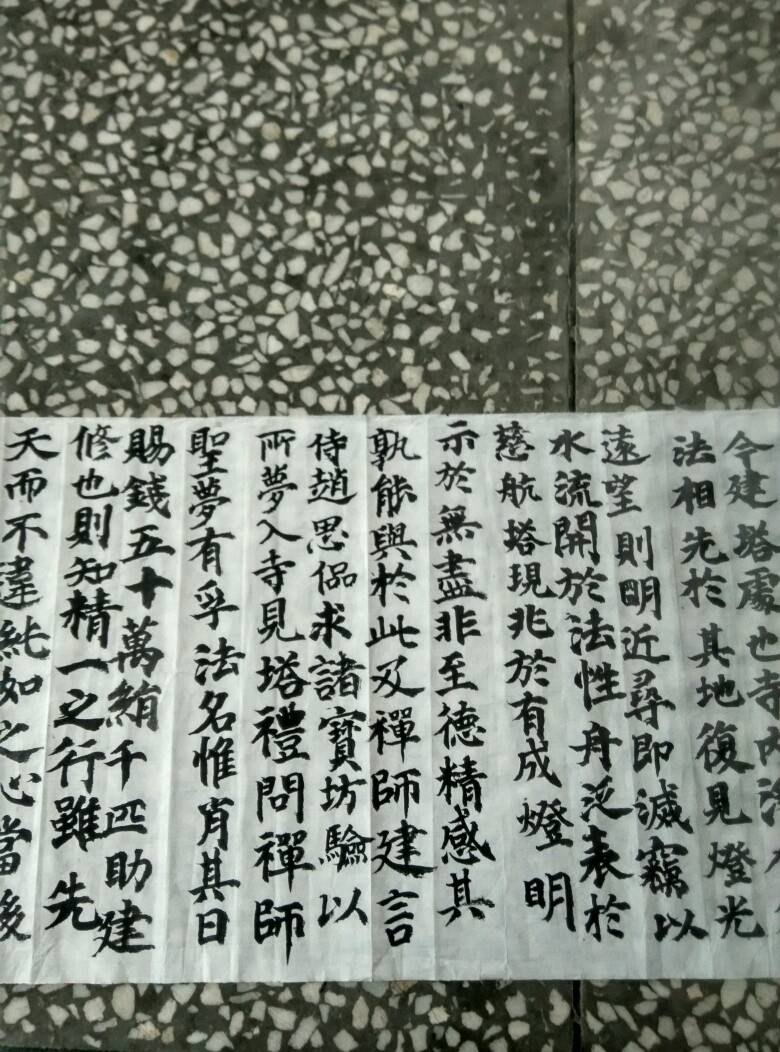 今建塔處也寺內淨
法相先於其地復見燈光
遠望則明近尋即滅竊以
水流開於法性舟泛表於
慈航塔現兆於有成燈明
示於無盡非至德精感其
孰能與於此及禪師建言
侍趙思侶求諸寶坊驗以
所夢入寺見塔禮問禪師
聖夢有孚法名惟肖其日
賜錢五十萬絹千匹助建
修也則知精一之行雖先
天而不違純如之心當後